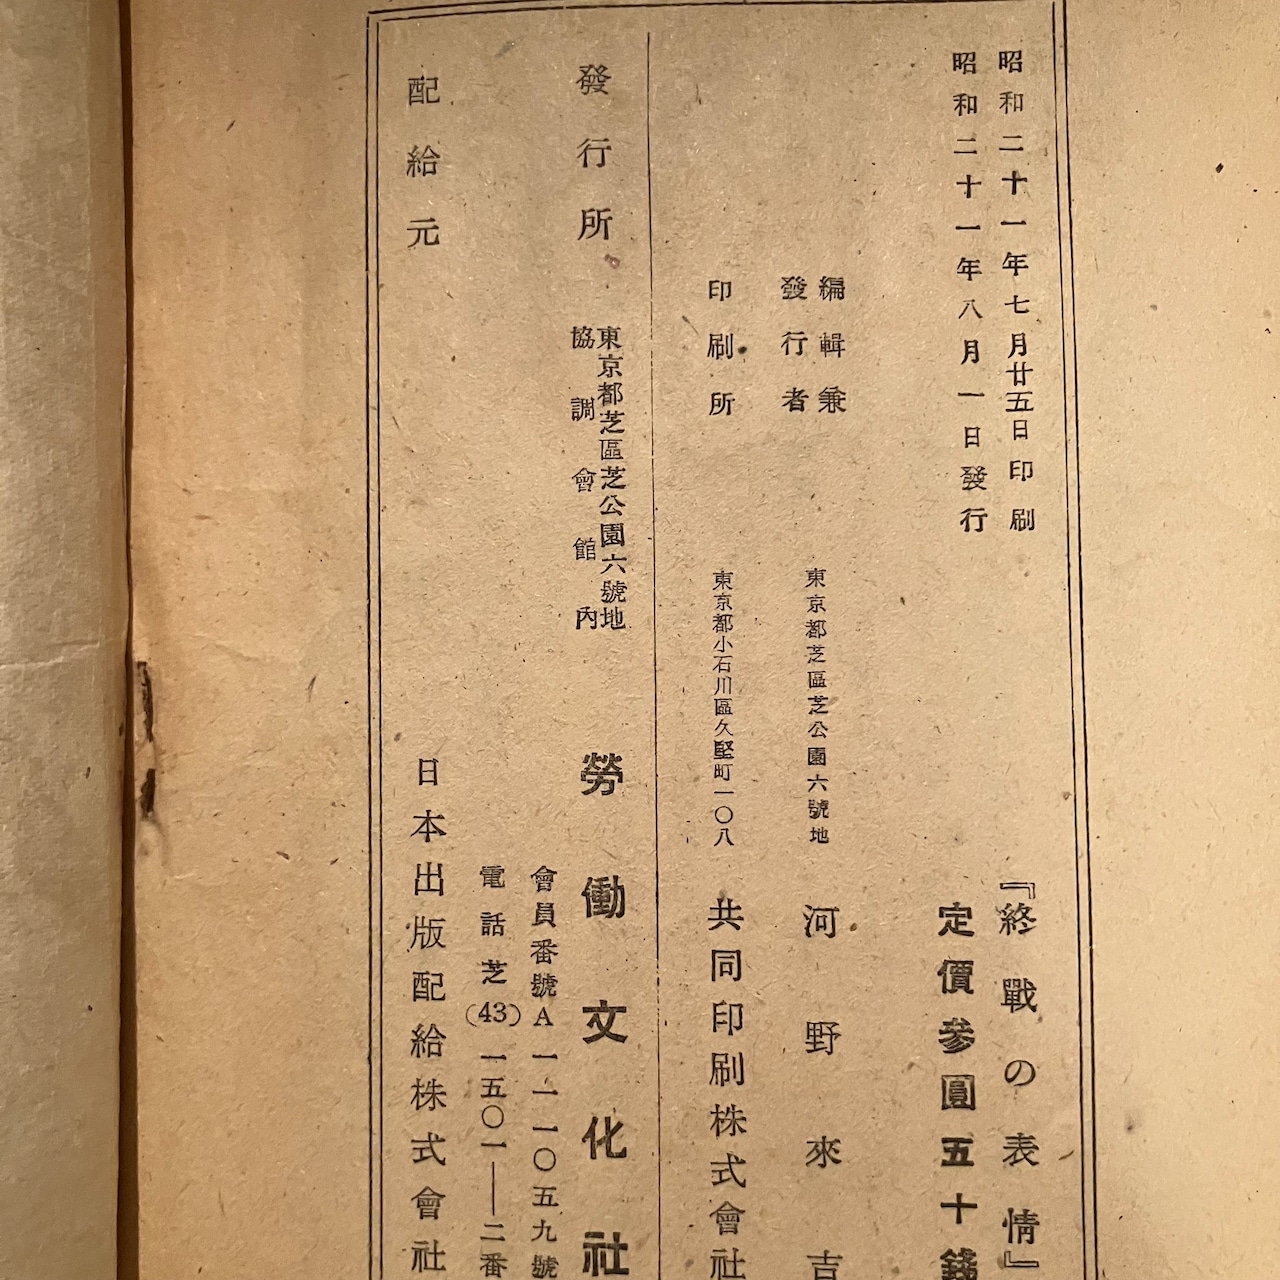 昭和二十一年七月廿五日印刷
昭和二十一年八月一日發行
『終戰の表情』
定價參圓五十錢
編輯兼
發行者
東京都芝區芝公園六號地
河野來吉
印刷所
東京都小石川區久堅町一〇八
共同印刷株式會社
發行所
東京都芝區芝公園六號地
協調會館內
勞働文化社
會員番號A一一一〇五九號
電話芝(43)一五〇一——二番
配給元
日本出版配給株式會社